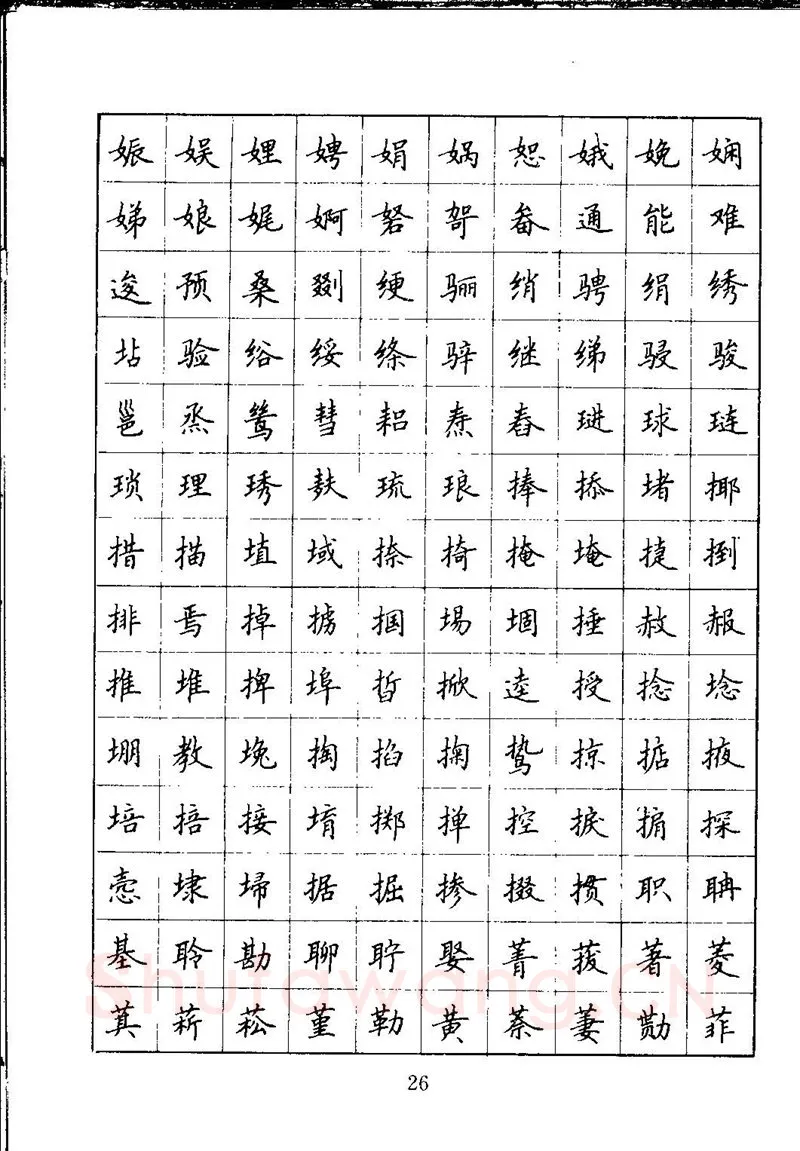 娠 娱 娌 娉 娟 娲 恕 娥 娩 娴
娣 娘 娓 婀 砮 哿 畚 通 能 难
逡 预 桑 剟 绠 骊 绡 骋 绢 绣
坫 验 绤 绥 绦 骍 继 绨 骎 骏
邕 烝 鸶 彗 耜 焘 舂 琎 球 琏
琐 理 琇 麸 琉 琅 捧 掭 堵 揶
措 描 埴 域 捺 掎 掩 埯 捷 捯
排 焉 掉 掳 掴 埸 堌 捶 赦 赧
推 堆 捭 埠 晢 掀 逵 授 捻 埝
堋 教 堍 掏 掐 掬 鸷 掠 掂 掖
培 掊 接 堉 掷 掸 控 捩 掮 探
悫 埭 埽 据 掘 掺 掇 掼 职 聃
基 聆 勘 聊 聍 娶 菁 菝 著 菱
萁 菥 菘 堇 勒 黄 萘 萋 勚 菲
26
Shufawang.CN